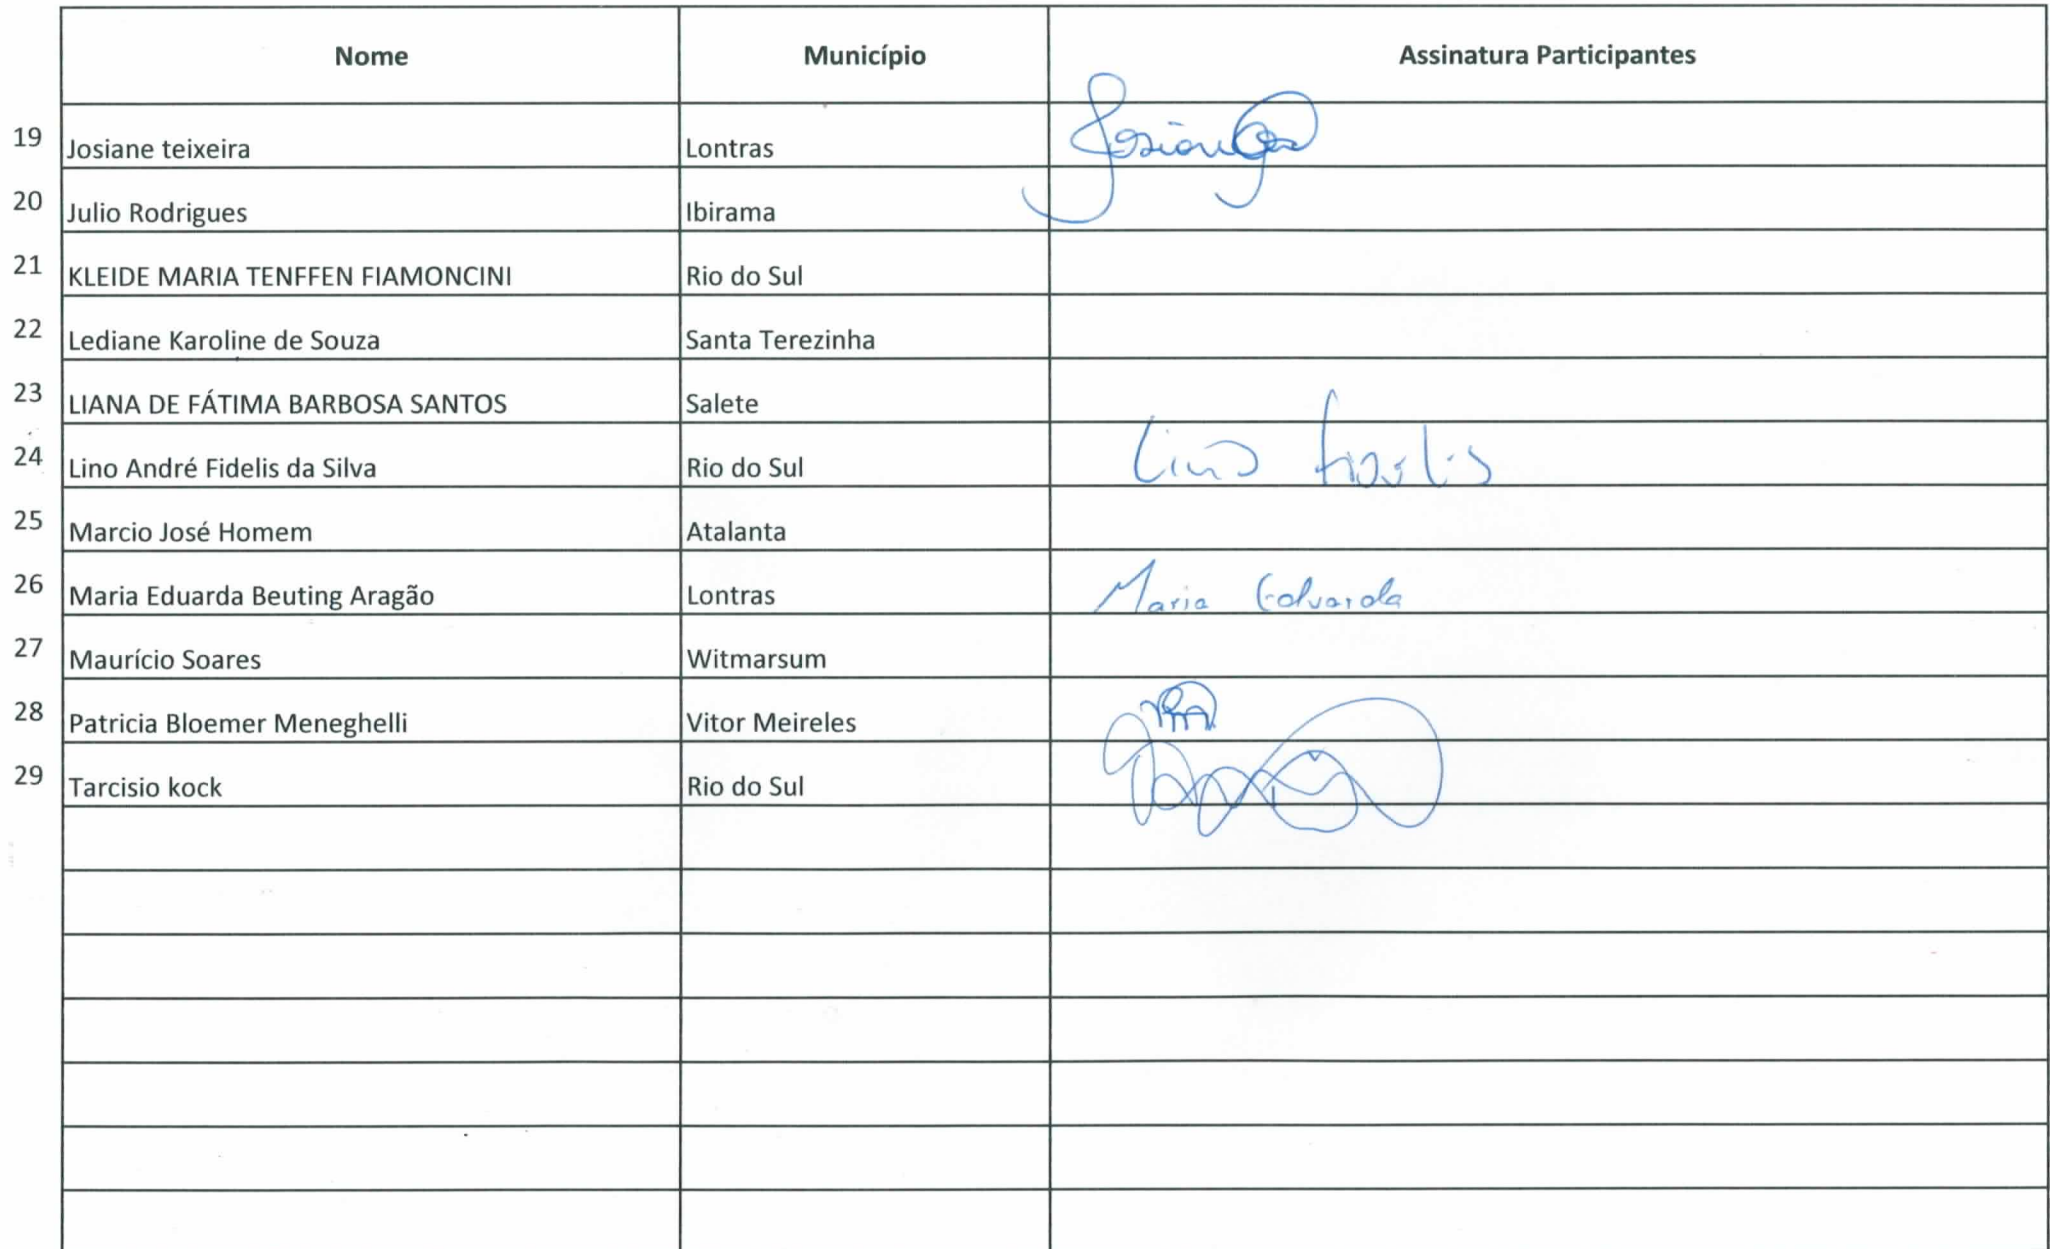 Nome Município Assinatura Participantes
19 Josiane teixeira Lontras
20 Julio Rodrigues Ibirama
21 KLEIDE MARIA TENFFEN FIAMONCINI Rio do Sul
22 Lediane Karoline de Souza Santa Terezinha
23 LIANA DE FÁTIMA BARBOSA SANTOS Salete
24 Lino André Fidelis da Silva Rio do Sul Lino Fidelis
25 Marcio José Homem Atalanta
26 Maria Eduarda Beuting Aragão Lontras Maria Eduarda
27 Maurício Soares Witmarsum
28 Patricia Bloemer Meneghelli Vitor Meireles
29 Tarcisio kock Rio do Sul